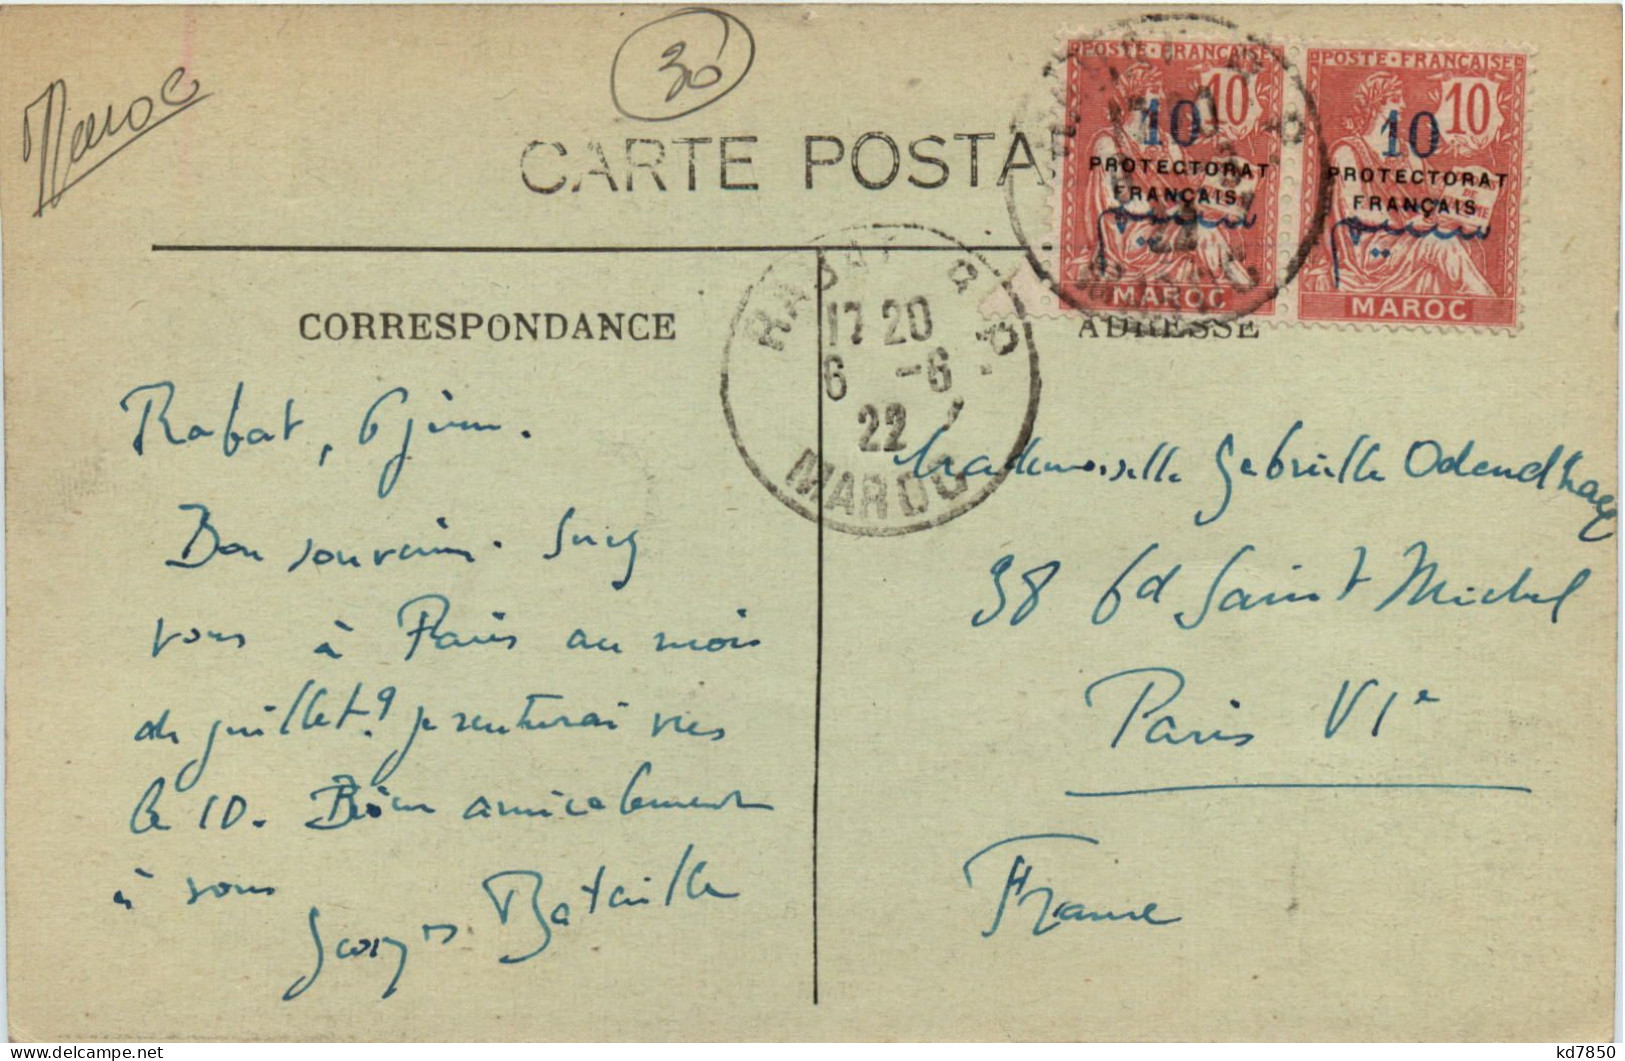 Maroc
30
CARTE POSTA
POSTE · FRANÇAISE
10
10
PROTECTORAT
FRANÇAIS
MAROC
POSTE · FRANÇAISE
10
10
PROTECTORAT
FRANÇAIS
MAROC
CORRESPONDANCE
ADRESSE
RABAT R.P.
17 20
6 -6
22
MAROC
Rabat, 6 juin.
Bon souvenir.
vous à Paris au mois
de juillet? je rentrerai vers
le 10. Bien amicalement
à vous
Georges Bataille
Mademoiselle Gabrielle Odendhal
98 bd Saint Michel
Paris VIe
France
kd7850